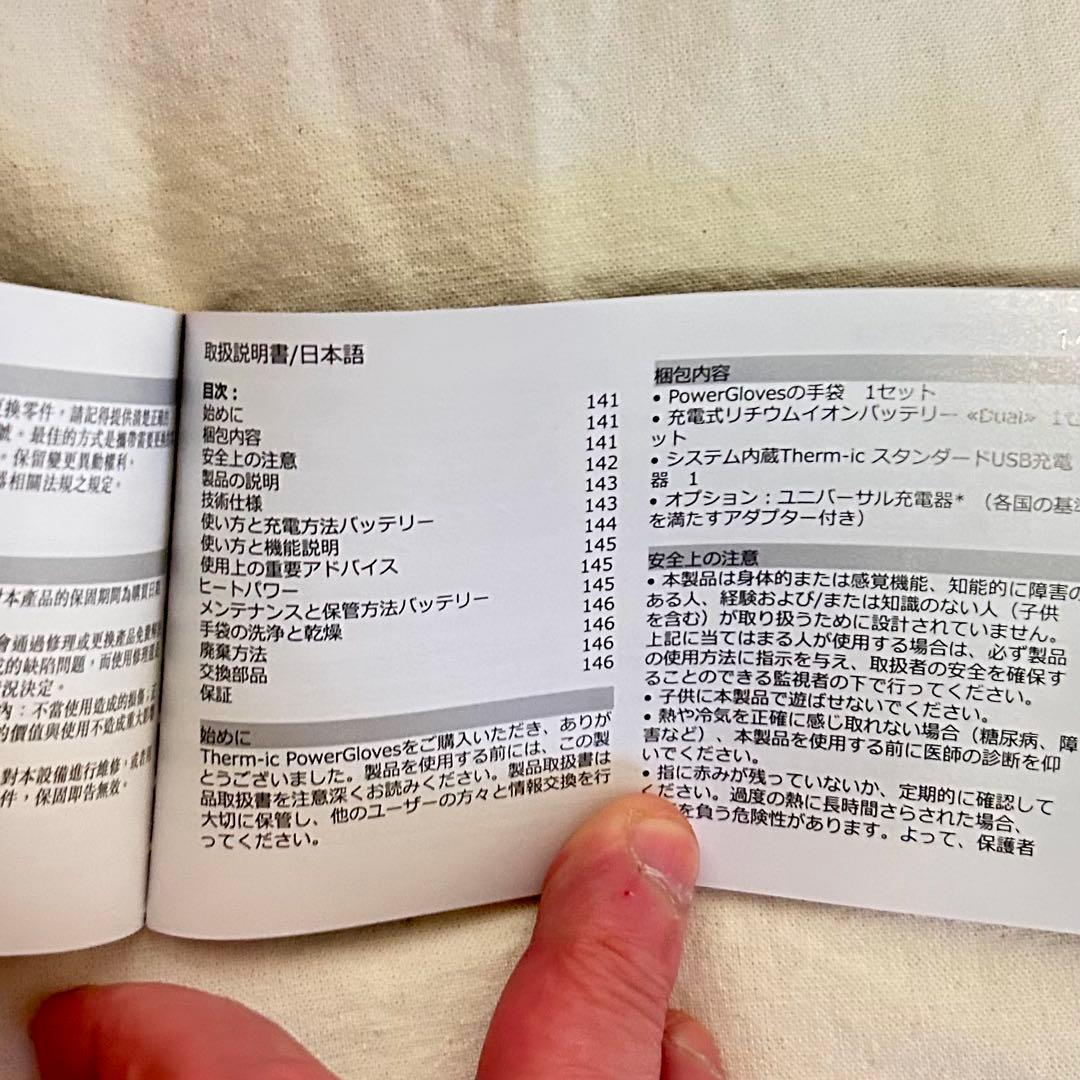 更換零件，請記得提供清楚正確的
號。最佳的方式是攜帶需要更換
。保留變更異動權利。
器相關法規之規定。
本產品的保固期間為購買日期
會通過修理或更換產品免費解
成的缺陷問題，而使用修理還是
況決定。
內：不當使用造成的損傷；正
的價值與使用不造成重大影響
對本設備進行維修，或者
件，保固即告無效。
取扱説明書/日本語
目次：
始めに 141
梱包内容 141
安全上の注意 141
製品の説明 142
技術仕様 143
使い方と充電方法バッテリー 143
使い方と機能説明 144
使用上の重要アドバイス 145
ヒートパワー 145
メンテナンスと保管方法バッテリー 145
手袋の洗浄と乾燥 146
廃棄方法 146
交換部品 146
保証 146
始めに
Therm-ic PowerGlovesをご購入いただき、ありが
とうございました。製品を使用する前には、この製
品取扱書を注意深くお読みください。製品取扱書は
大切に保管し、他のユーザーの方々と情報交換を行
ってください。
梱包内容
• PowerGlovesの手袋　1セット
• 充電式リチウムイオンバッテリー «Dual»　1セ
ット
• システム内蔵Therm-ic スタンダードUSB充電
器　1
• オプション：ユニバーサル充電器*　（各国の基準
を満たすアダプター付き）
安全上の注意
• 本製品は身体的または感覚機能、知能的に障害の
ある人、経験および/または知識のない人（子供
を含む）が取り扱うために設計されていません。
上記に当てはまる人が使用する場合は、必ず製品
の使用方法に指示を与え、取扱者の安全を確保す
ることのできる監視者の下で行ってください。
• 子供に本製品で遊ばせないでください。
• 熱や冷気を正確に感じ取れない場合（糖尿病、障
害など）、本製品を使用する前に医師の診断を仰
いでください。
• 指に赤みが残っていないか、定期的に確認して
ください。過度の熱に長時間さらされた場合、
を負う危険性があります。よって、保護者